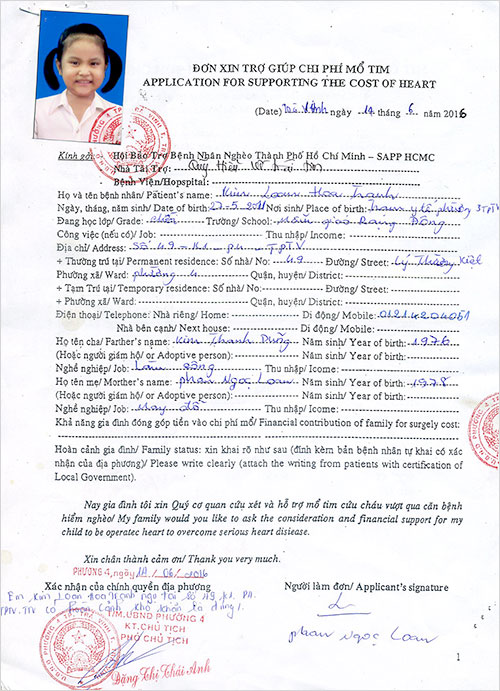 ĐƠN XIN TRỢ GIÚP CHI PHÍ MỔ TIM
APPLICATION FOR SUPPORTING THE COST OF HEART
(Date) ngày 14 tháng 6 năm 2016
Kính gởi: Hội Bảo Trợ Bệnh Nhân Nghèo Thành Phố Hồ Chí Minh – SAPP HCMC
Nhà Tài Trợ:
Bệnh Viện/Hopspital:
Họ và tên bệnh nhân/ Patient's name: Kim Loan Hoa Tranh
Ngày, tháng, năm sinh/ Date of birth: 27-5-2011 Nơi sinh/ Place of birth: Trạm y tế phường 3 TPTV
Đang học lớp/ Grade: chồi Trường/ School: mẫu giáo Rạng Đông
Công việc (nếu có)/ Job: Thu nhập/ Income:
Địa chỉ/ Address: Số 49 - K1 - P4 - TPTV
+ Thường trú tại/ Permanent residence: Số nhà/ No: 49 Đường/ Street: Lý Thường Kiệt
Phường xã/ Ward: phường 4 Quận, huyện/ District:
+ Tạm Trú tại/ Temporary residence: Số nhà/ No: Đường/ Street:
+ Phường xã/ Ward: Quận, huyện/ District:
Điện thoại/ Telephone: Nhà riêng/ Home: Di động/ Mobile: 01214204051
Nhà bên cạnh/ Next house: Di động/ Mobile:
Họ tên cha/ Farther's name: Kim Thanh Năm sinh/ Year of birth: 1976
(Hoặc người giám hộ/ or Adoptive person): Năm sinh/ Year of birth:
Nghề nghiệp/ Job: Làm Thu nhập/ Icome:
Họ tên mẹ/ Morther's name: phan Ngọc Loan Năm sinh/ Year of birth: 1978
(Hoặc người giám hộ/ or Adoptive person): Năm sinh/ Year of birth:
Nghề nghiệp/ Job: May đồ Thu nhập/ Icome:
Khả năng gia đình đóng góp tiền vào chi phí mổ/ Financial contribution of family for surgely cost:
Hoàn cảnh gia đình/ Family status: xin khai rõ như sau (đính kèm bản bệnh nhân tự khai có xác
nhận của địa phương)/ Please write clearly (attach the writing from patients with certification of
Local Government).
Nay gia đình tôi xin Quý cơ quan cứu xét và hỗ trợ mổ tim cứu cháu vượt qua căn bệnh
hiểm nghèo/ My family would you like to ask the consideration and financial support for my
child to be operatec heart to overcome serious heart disiease.
Xin chân thành cảm ơn/ Thank you very much.
PHƯỜNG 4, ngày 14 / 06 / 2016
Xác nhận của chính quyền địa phương Người làm đơn/ Applicant's signature
Em Kim Loan Hoa Tranh ngụ tại số 49, K1, P4,
TPTV. TV có hoàn cảnh khó khăn là đúng.
T/M.UBND PHƯỜNG 4
KT.CHỦ TỊCH
PHÓ CHỦ TỊCH
Đặng Thị Thái Anh
phan Ngọc Loan
1